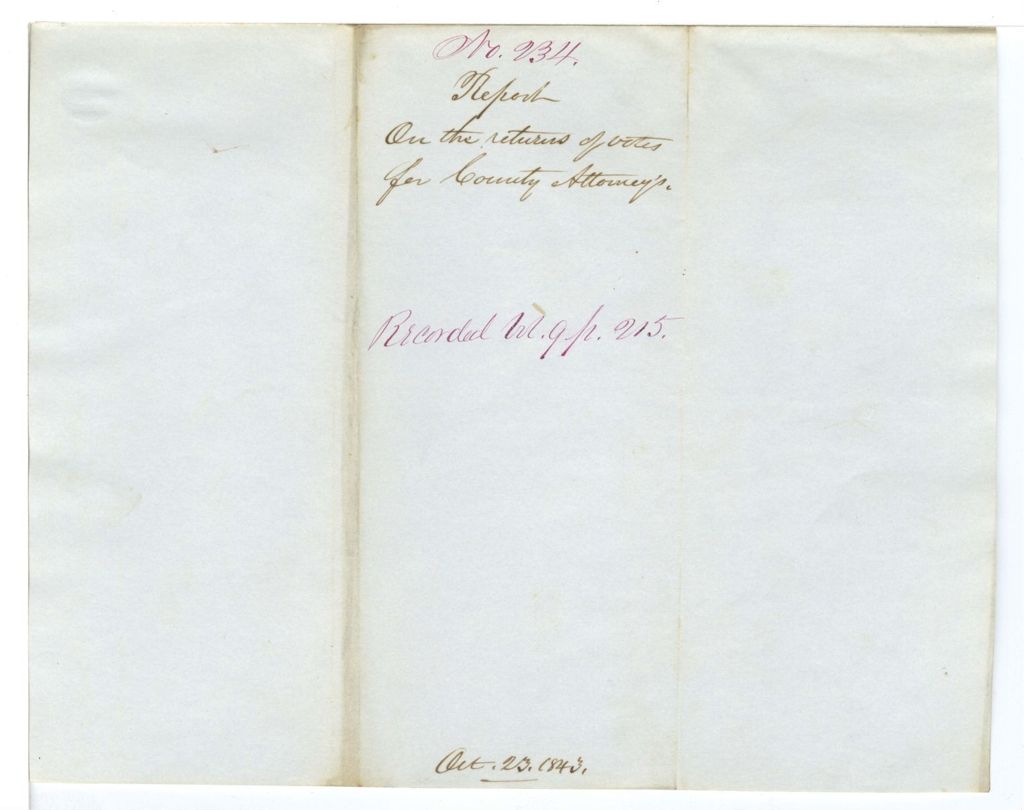 No. 234.
Report
On the returns of votes
for County Attorney's.
Recorded Vol. 9 p. 215.
Oct. 23. 1843.